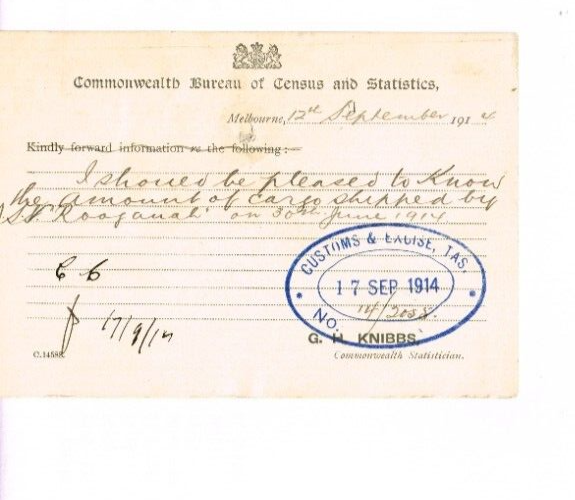 Commonwealth Bureau of Census and Statistics,
Melbourne, 12th September 1914
Kindly forward information re the following:—
I should be pleased to know
the amount of cargo shipped by
S.S. "Rooganah" on 30th June 1914
CUSTOMS & EXCISE, TAS.
17 SEP 1914
No. 14/3058.
17/9/14
G. H. KNIBBS,
Commonwealth Statistician.
C.14588.